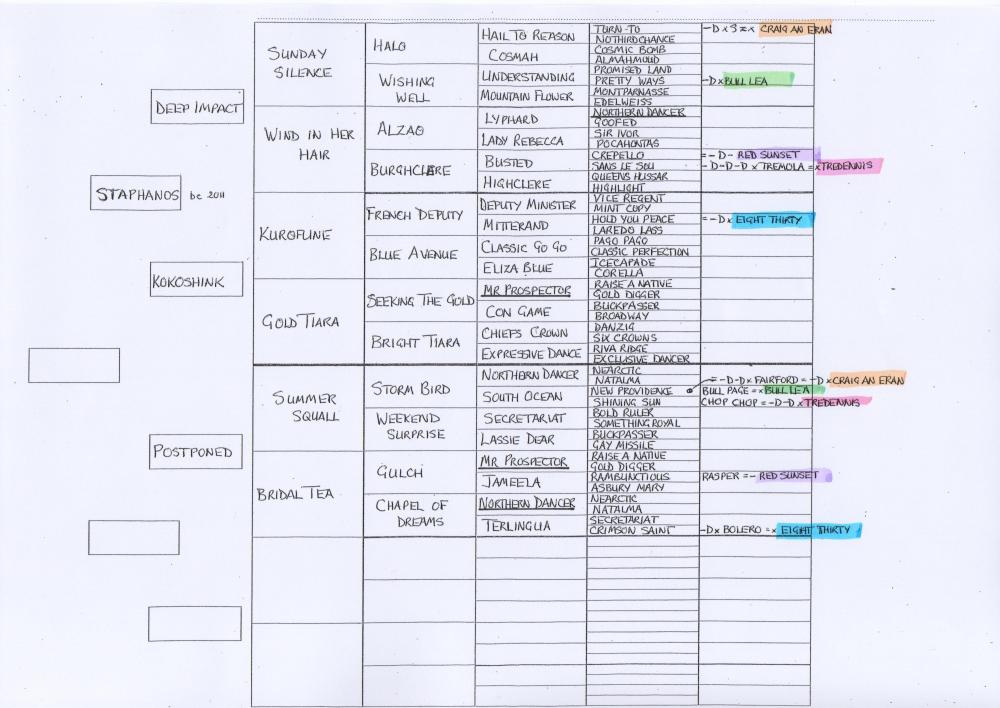 DEEP IMPACT
STAPHANOS bc 2011
KOKOSHINK
POSTPONED
SUNDAY
SILENCE
WIND IN HER
HAIR
KUROFUNE
GOLD TIARA
SUMMER
SQUALL
BRIDAL TEA
HALO
WISHING
WELL
ALZAO
BURGHCLERE
FRENCH DEPUTY
BLUE AVENUE
SEEKING THE GOLD
BRIGHT TIARA
STORM BIRD
WEEKEND
SURPRISE
GULCH
CHAPEL OF
DREAMS
HAIL TO REASON
COSMAH
UNDERSTANDING
MOUNTAIN FLOWER
LYPHARD
LADY REBECCA
BUSTED
HIGHCLERE
DEPUTY MINISTER
MITTERAND
CLASSIC GO GO
ELIZA BLUE
MR PROSPECTOR
CON GAME
CHIEFS CROWN
EXPRESSIVE DANCE
NORTHERN DANCER
SOUTH OCEAN
SECRETARIAT
LASSIE DEAR
MR PROSPECTOR
JAMEELA
NORTHERN DANCER
TERLINGUA
TURN-TO
NOTHIRDCHANCE
COSMIC BOMB
ALMAHMOUD
PROMISED LAND
PRETTY WAYS
MONTPARNASSE
EDELWEISS
NORTHERN DANCER
GOOFED
SIR IVOR
POCAHONTAS
CREPELLO
SANS LE SOU
QUEENS HUSSAR
HIGHLIGHT
VICE REGENT
MINT COPY
HOLD YOU PEACE
LAREDO LASS
PAGO PAGO
CLASSIC PERFECTION
ICECAPADE
CORELLA
RAISE A NATIVE
GOLD DIGGER
BUCKPASSER
BROADWAY
DANZIG
SIX CROWNS
RIVA RIDGE
EXCLUSIVE DANCER
NEARCTIC
NATALMA
NEW PROVIDENCE
SHINING SUN
BOLD RULER
SOMETHINGROYAL
BUCKPASSER
GAY MISSILE
RAISE A NATIVE
GOLD DIGGER
RAMBUNCTIOUS
ASBURY MARY
NEARCTIC
NATALMA
SECRETARIAT
CRIMSON SAINT
CRAIG AN ERAN
-D× BULL LEA
= -D- RED SUNSET
-D-D-D × TREMOLA =× TREDENNIS
= -D× EIGHT THIRTY
= -D-D× FAIRFORD = -D× CRAIG AN ERAN
BULL PAGE =× BULL LEA
CHOP CHOP = -D-D × TREDENNIS
RASPER = - RED SUNSET
-D× BOLERO =× EIGHT THIRTY